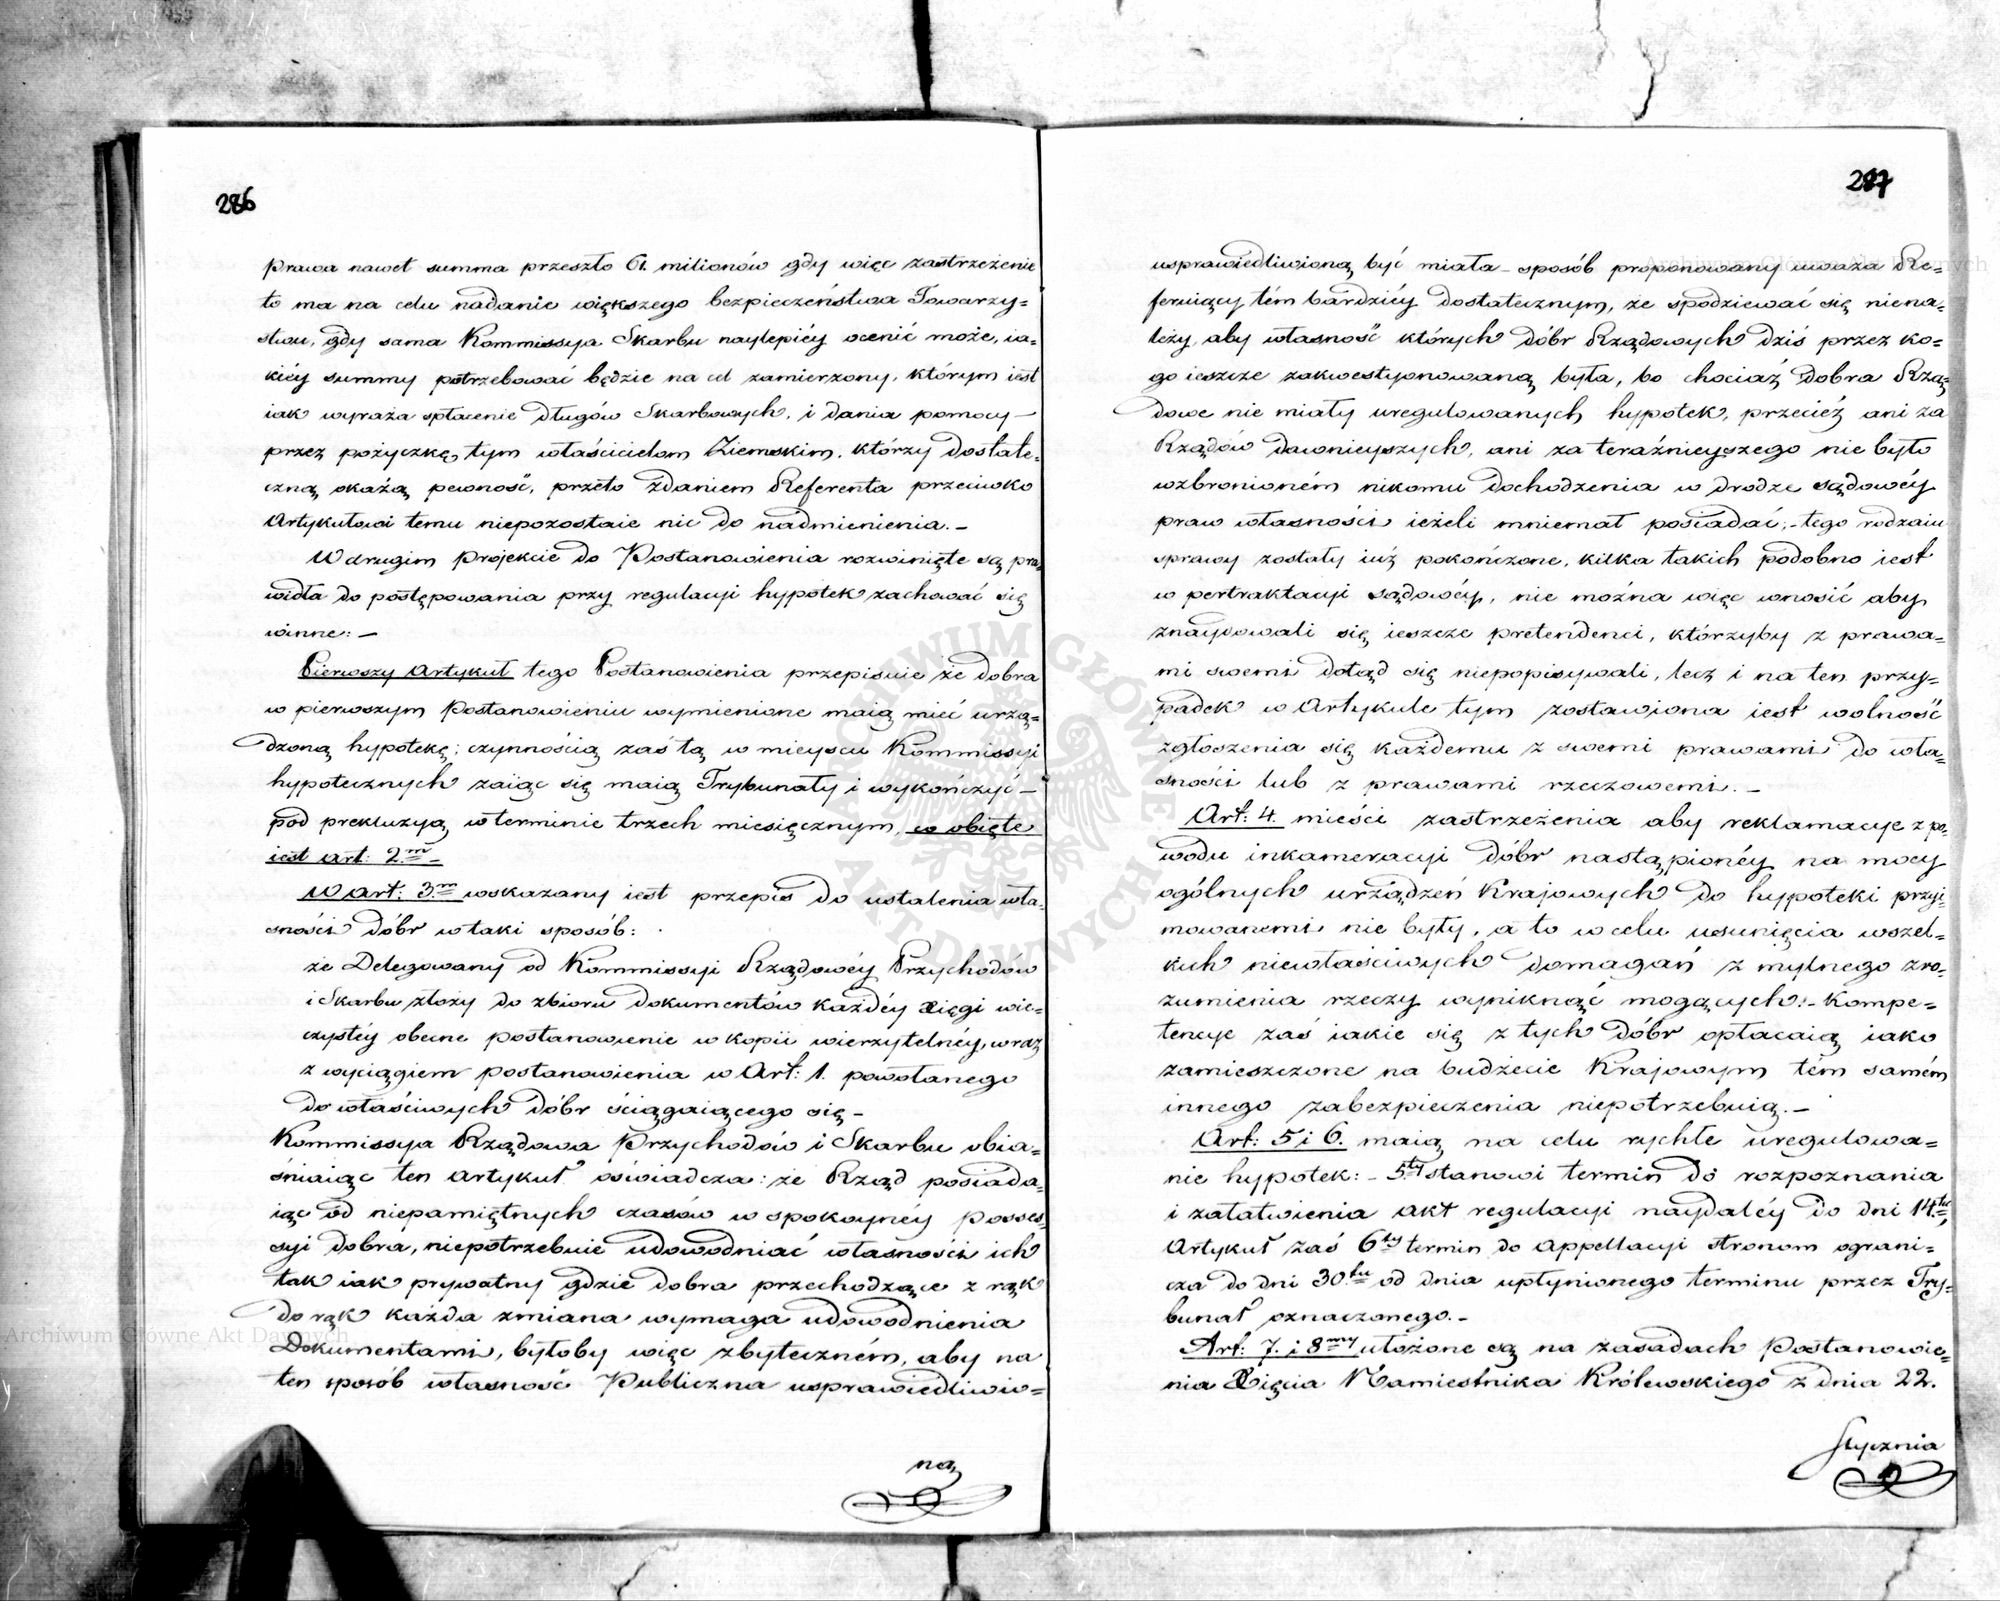 286
prawa nawet summa przeszło 61. milionów gdy więc zastrzeżenie
to ma na celu nadanie większego bezpieczeństwa Towarzy=
stwu, gdy sama Kommissya Skarbu naylepiéy ocenić może, ia=
kiéy summy potrzebować będzie na cel zamierzony, którym iest
iak wyraża spłacenie długów Skarbowych, i dania pomocy -
przez pożyczkę, tym właścicielom Ziemskim, którzy dostate=
czną okażą pewność, przeto zdaniem Referenta przeciwko
Artykułowi temu niepozostaie nic do nadmienienia. -
W drugim Projekcie do Postanowienia rozwinięte są pra=
widła do postępowania przy regulacyi hypotek zachować się
winne: -
Pierwszy Artykuł tego Postanowienia przepisuie że dobra
w pierwszym Postanowieniu wymienione maią mieć urzą=
dzoną hypotekę; czynnością zaś tą w mieyscu Kommissyi
hypotecznych zaiąc się maią Trybunały i wykończyć -
pod prekluzyą w terminie trzech miesięcznym, co obięte
iest art: 2m -
W art: 3m wskazany iest przepis do ustalenia wła=
sności dóbr w taki sposób:
że Delegowany od Kommissyi Rządowéy Przychodów
i Skarbu złoży do zbioru dokumentów każdéy Xięgi wie=
czystéy obecne postanowienie w kopii wierzytelnéy, wraz
z wyciągiem postanowienia w Art: 1. powołanego
do właściwych dóbr ściągaiącego się -
Kommissya Rządowa Przychodów i Skarbu obia=
śniaiąc ten artykuł oświadcza: że Rząd posiada=
iąc od niepamiętnych czasów w spokoynéy posses=
syi dobra, niepotrzebuie udowodniać własności ich
tak iak prywatny gdzie dobra przechodzące z rąk
do rąk każda zmiana wymaga udowodnienia
Dokumentami, byłoby więc zbyteczném, aby na
ten sposób własność Publiczna usprawiedliwio=
ną
287
usprawiedliwioną być miała - sposób proponowany uważa Re=
feruiący tém bardziéy dostatecznym, że spodziewać się niena=
leży, aby własność których dóbr Rządowych dziś przez ko=
go ieszcze zakwestyonowaną była, bo chociaż dobra Rzą=
dowe nie miały uregulowanych hypotek, przecież ani za
Rządów dawnieyszych, ani za teraźnieyszego nie było
wzbronioném nikomu dochodzenia w drodze sądowéy
praw własności ieżeli mniemał posiadać; - tego rodzaiu
sprawy zostały iuż pokończone, kilka takich podobno iest
w pertraktacyi sądowéy, nie można więc wnosić aby
znaydowali się ieszcze pretendenci, którzyby z prawa=
mi swemi dotąd się niepopisywali, lecz i na ten przy=
padek w Artykule tym zostawiona iest wolność
zgłoszenia się każdemu z swemi prawami do wła=
sności lub z prawami rzeczowemi. -
Art: 4. mieści zastrzeżenia aby reklamacye z po=
wodu inkameracyi dóbr nastąpionéy na mocy
ogólnych urządzeń Krajowych do hypoteki przyi=
mowanemi nie były, a to w celu usunięcia wszel=
kich niewłaściwych domagań z mylnego zro=
zumienia rzeczy wyniknąć mogących. - Kompe=
tencye zaś iakie się z tych dóbr opłacaią iako
zamieszczone na budżecie Krajowym tém samém
innego zabezpieczenia niepotrzebuią. -
Art: 5 i 6. maią na celu rychłe uregulowa=
nie hypotek: - 5ty stanowi termin do rozpoznania
i załatwienia akt regulacyi naydaléy do dni 14tu,
Artykuł zaś 6ty termin do appellacyi stronom ograni=
cza do dni 30tu od dnia upłynionego terminu przez Try=
bunał oznaczonego. -
Art: 7. i 8my ułożone są na zasadach Postanowie=
nia Xięcia Namiestnika Królewskiego z dnia 22.
Stycznia
Archiwum Główne Akt Dawnych
Archiwum Główne Akt Dawnych
ARCHIWUM GŁÓWNE AKT DAWNYCH